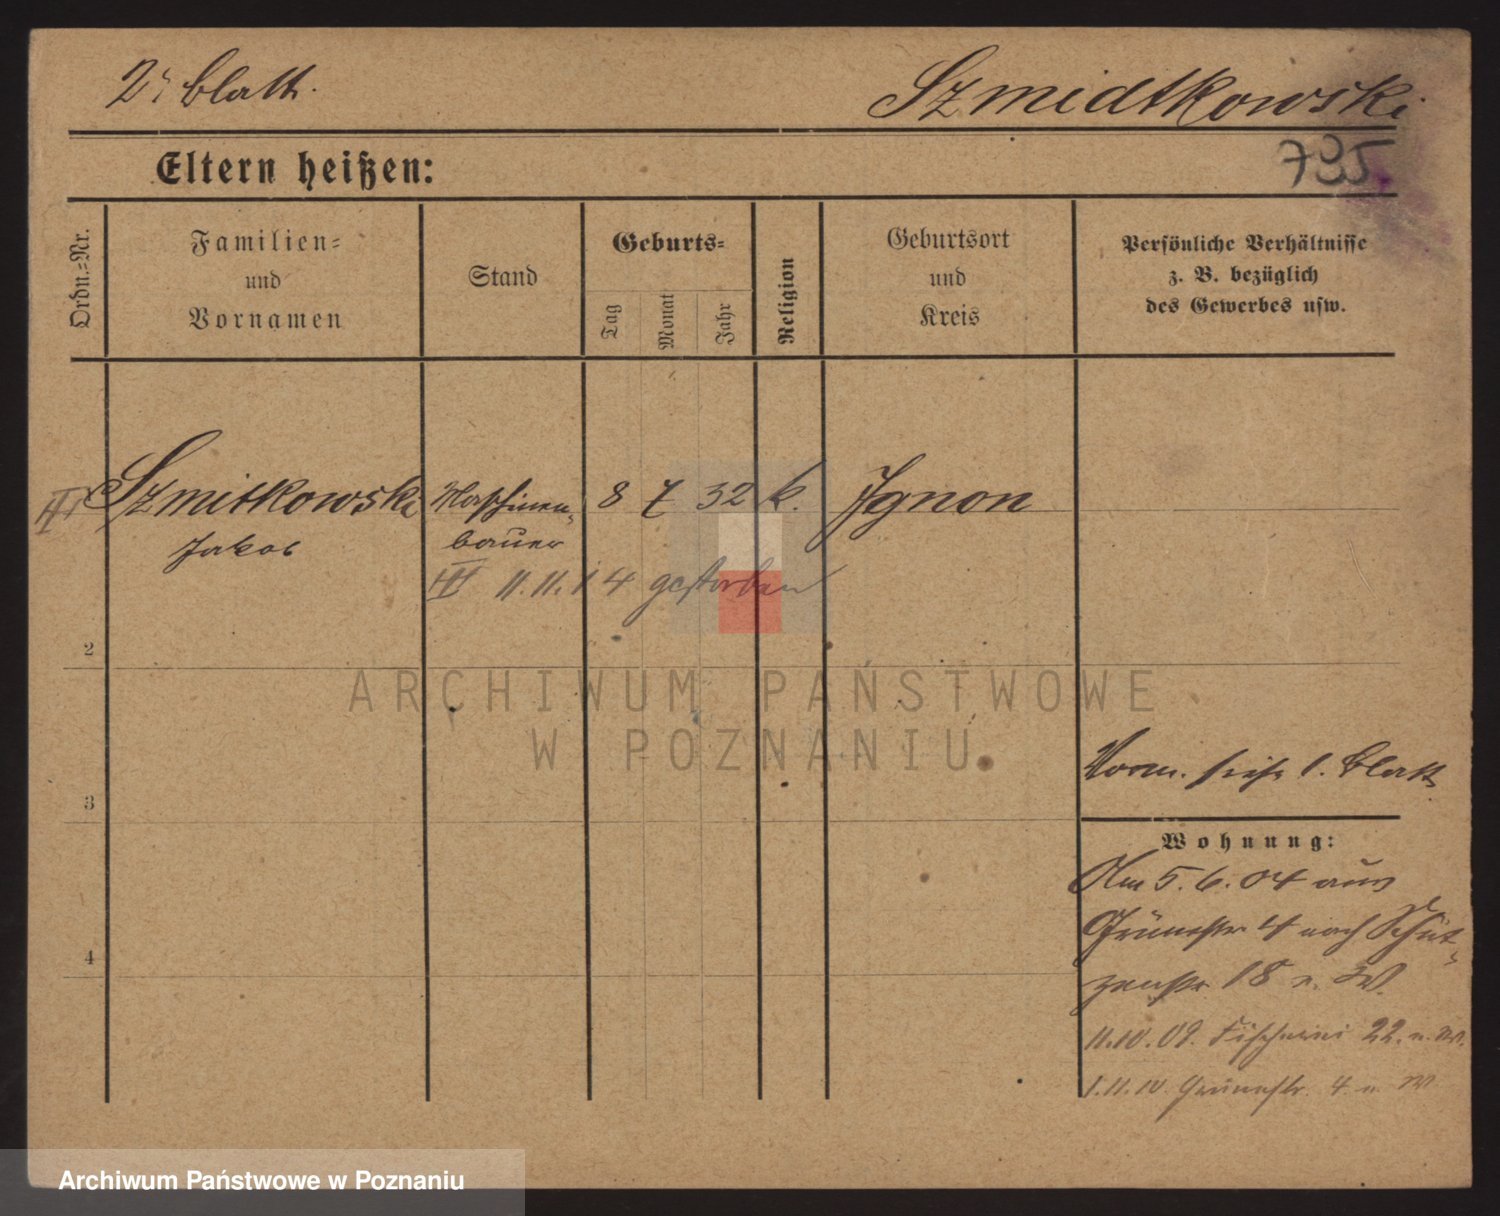 2tes Blatt.
Szmidtkowski
Eltern heißen:
735
Ordn.=Nr.
Familien=
und
Vornamen
Stand
Geburts=
Tag
Monat
Jahr
Religion
Geburtsort
und
Kreis
Persönliche Verhältnisse
z. B. bezüglich
des Gewerbes usw.
III Szmitkowski Maschinen- 8 7 32 k. Ignon
Jakob bauer
III 11.11.14 gestorben
2
ARCHIWUM PAŃSTWOWE
W POZNANIU
Vorm. siehe 1. Blatt
3
Wohnung:
Am 5.6.04 aus
Grünestr 4 nach Schüt-
4
zenstr. 18 n. W.
11.10.09. Fischerei 22. n. W.
1.11.10. Grünestr. 4 n. W
Archiwum Państwowe w Poznaniu